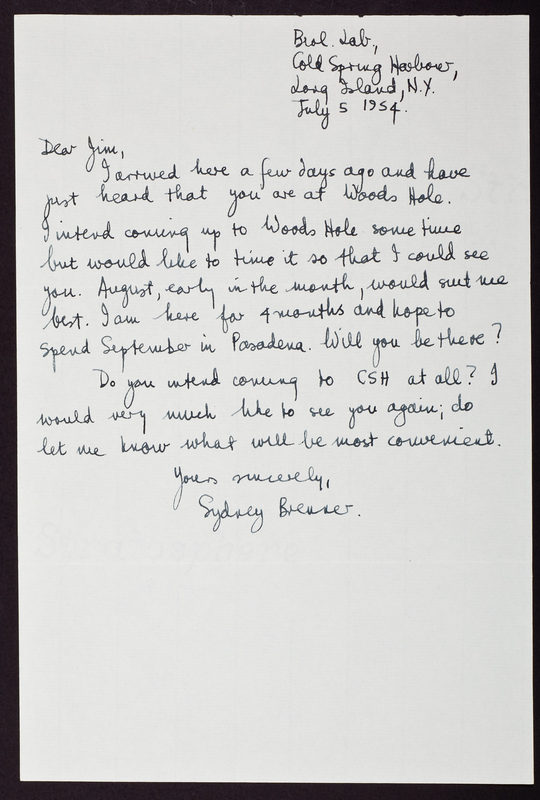 Biol. Lab,
Cold Spring Harbour,
Long Island, N.Y.
July 5 1954.
Dear Jim,
I arrived here a few days ago and have
just heard that you are at Woods Hole.
I intend coming up to Woods Hole some time
but would like to time it so that I could see
you. August, early in the month, would suit me
best. I am here for 4 months and hope to
spend September in Pasadena. Will you be there?
Do you intend coming to CSH at all? I
would very much like to see you again; do
let me know what will be most convenient.
Yours sincerely,
Sydney Brenner.